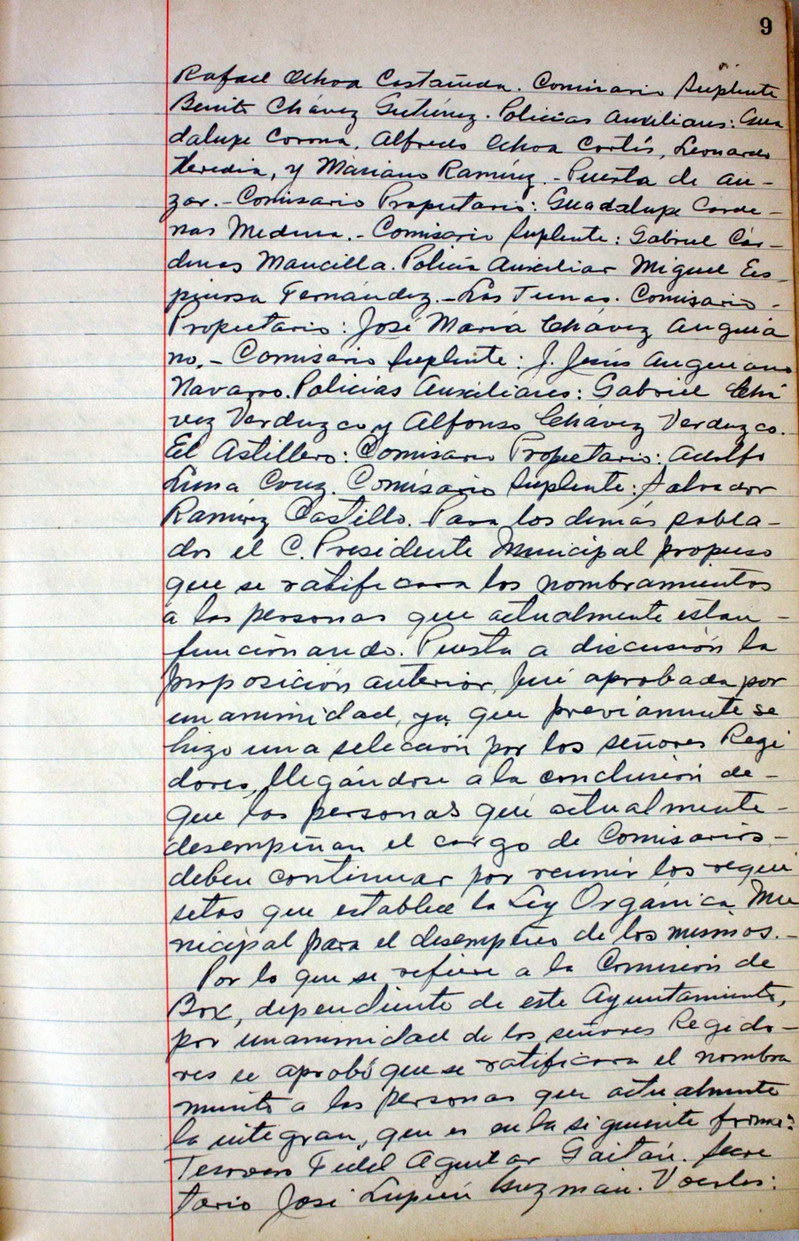 9
Rafael Ochoa Castañeda. Comisario Suplente
Benito Chávez Gutiérrez. Policias Auxiliares: Gua
dalupe Corona, Alfredo Ochoa Cortés, Leonardo
Heredia, y Mariano Ramírez.- Puerta de an-
zar.- Comisario Propietario: Guadalupe Carde-
nas Medina.- Comisario Suplente: Gabriel Cár-
denas Mancilla. Policia Auxiliar Miguel Es-
pinosa Fernández.- Las Tunas. Comisario-
Propietario: José María Chávez Anguia
no.- Comisario Suplente: J. Jesús Anguiano
Navarro. Policias Auxiliares: Gabriel Chá
vez Verduzco y Alfonso Chávez Verduzco.
El Astillero: Comisario Propietario: Adolfo
Luna Cruz. Comisario Suplente: Salvador
Ramírez Castillo. Para los demás pobla-
dos el C. Presidente Municipal propuso
que se ratificara los nombramientos
a las personas que actualmente estan-
funcionando. Puesta a discusión la
proposición anterior, fué aprobada por
unanimidad, ya que previamente se
hizo una selección por los señores Regi
dores, llegándose a la conclusión de-
que las personas que actualmente-
desempeñan el cargo de Comisarios-
deben continuar por reunir los requi
sitos que establece la Ley Orgánica Mu
nicipal para el desempeño de los mismos.-
Por lo que se refiere a la Comisión de
Box, dependiente de este Ayuntamiento,
por unanimidad de los señores Regido-
res se aprobó que se ratificara el nombra
miento a las personas que actualmente
la integran, que es en la siguiente forma:
Tesorero Fidel Aguilar Gaitán. Secre
tario José Lupián Guzmán. Vocales: